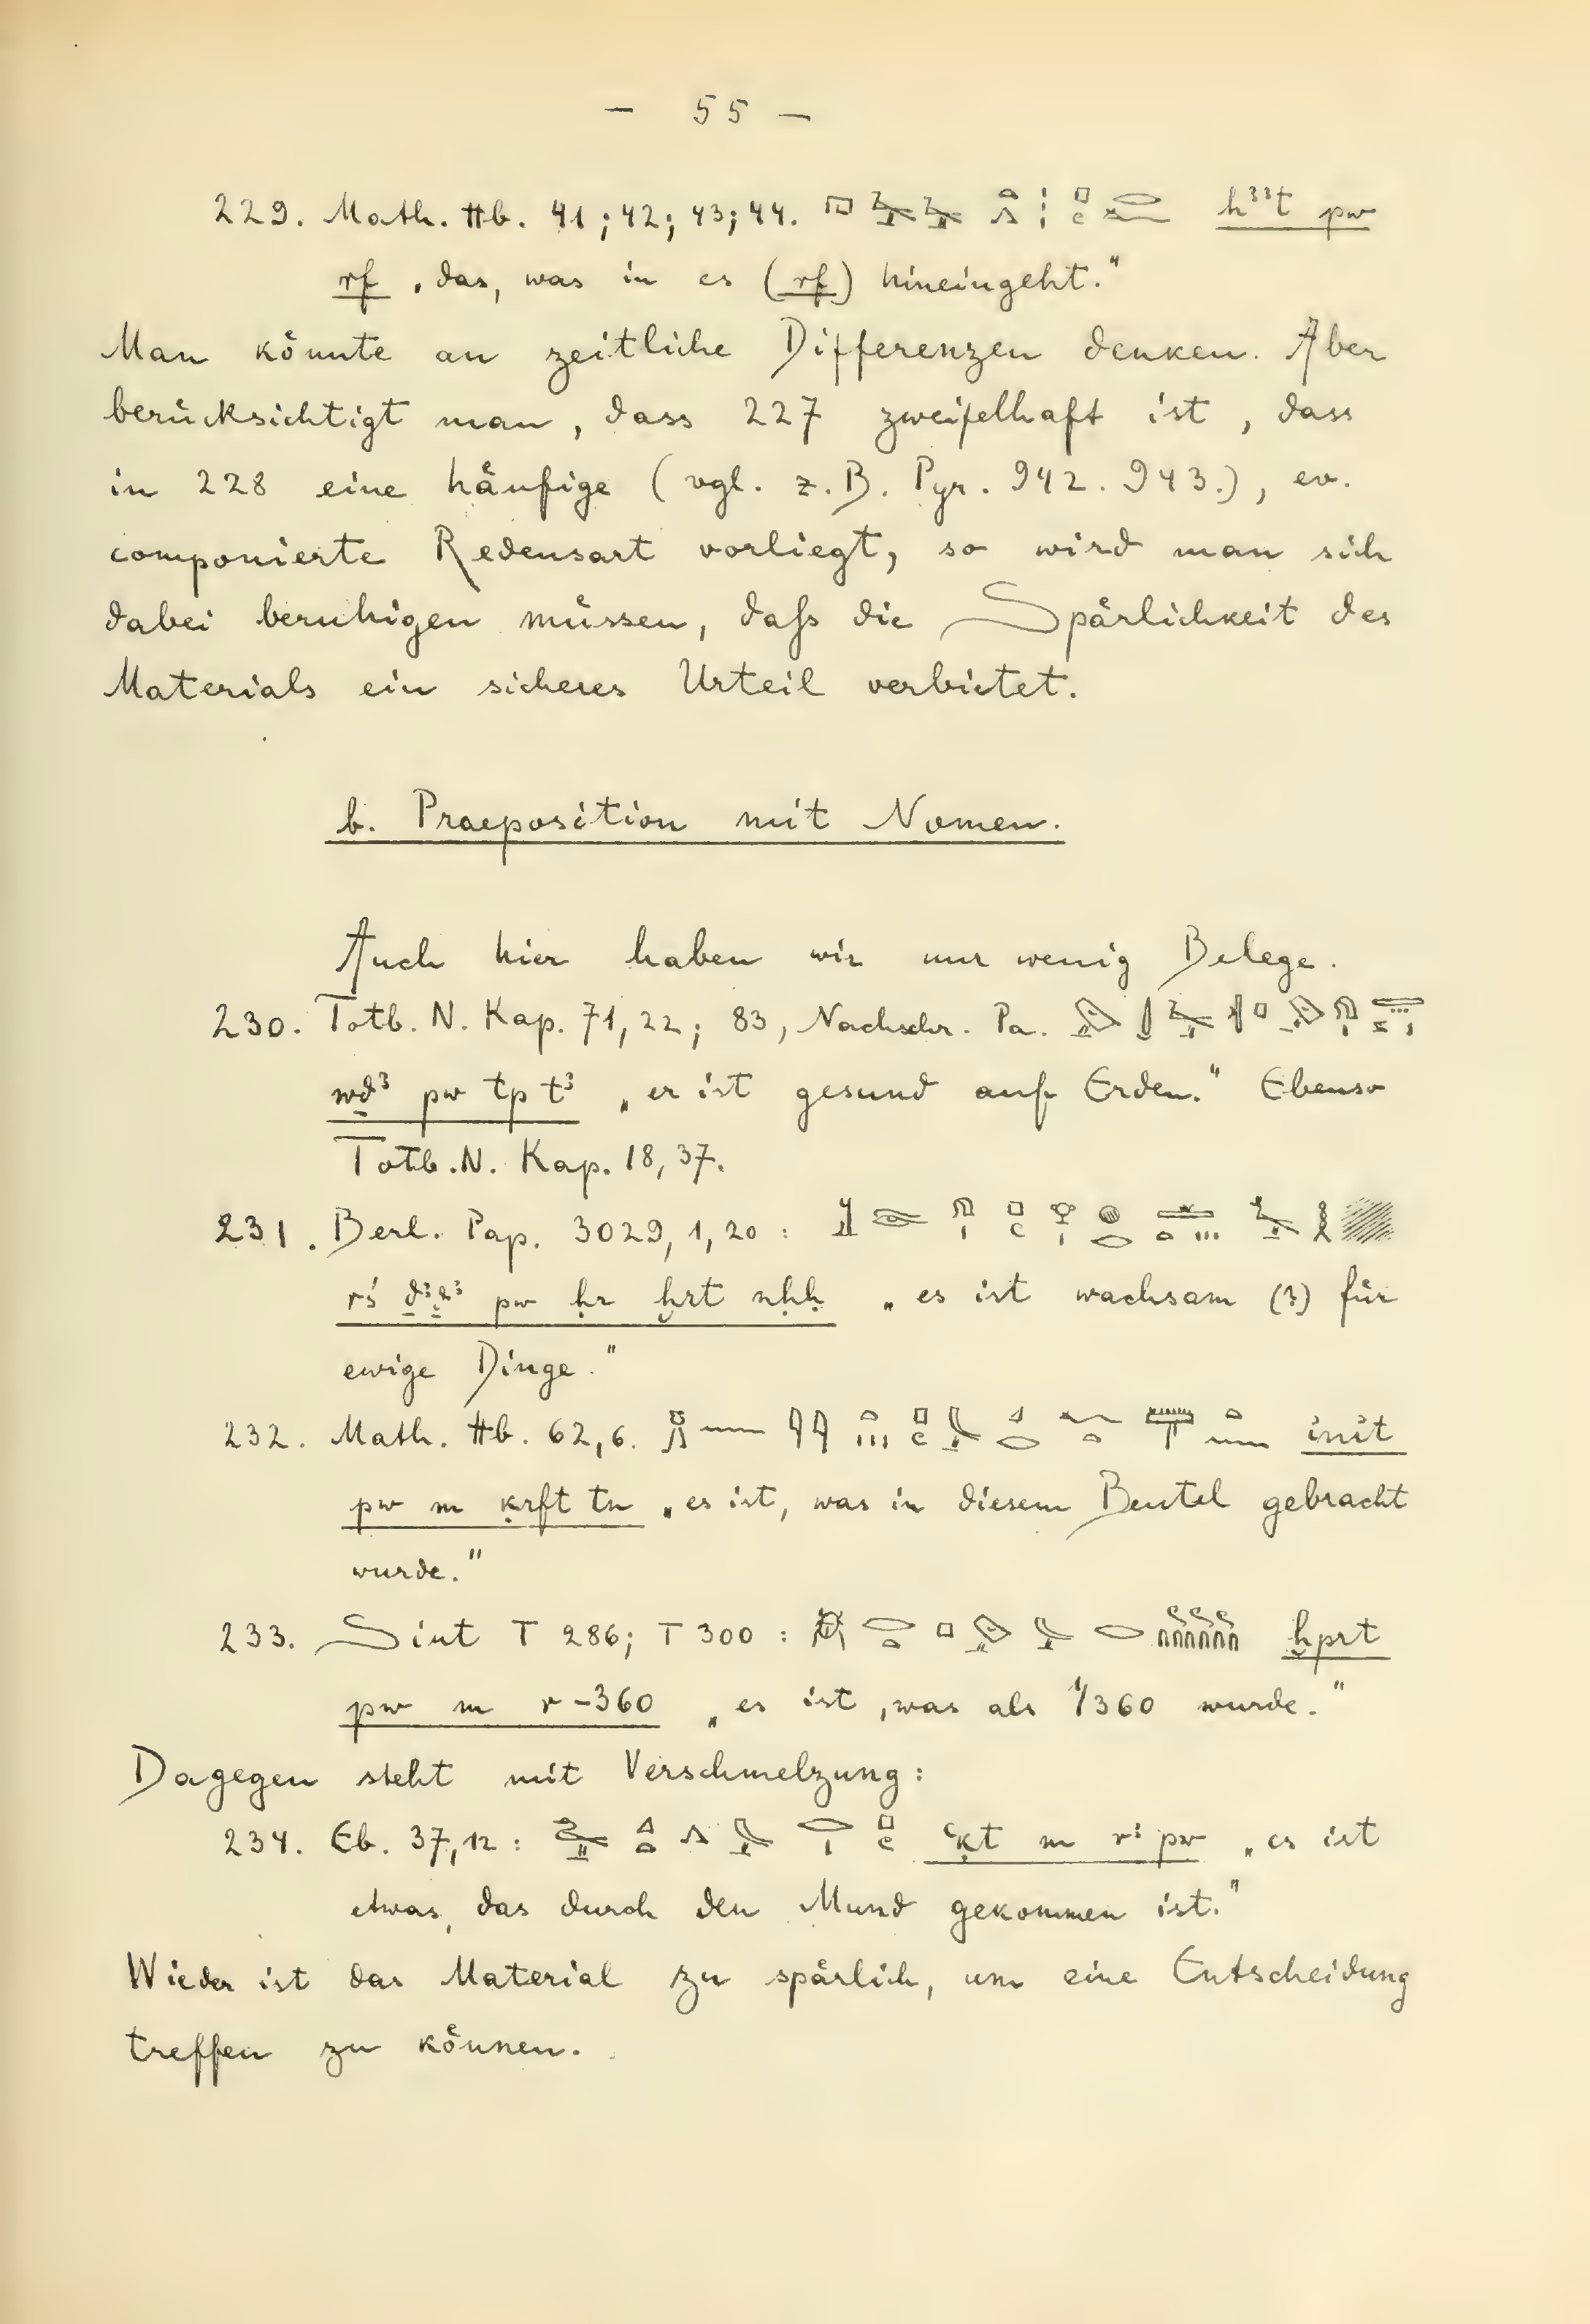 — 55 —
229. Math. Hb. 41; 42; 43; 44. hꜣꜣt pw
rf „das, was in es (rf) hineingeht."
Man könnte an zeitliche Differenzen denken. Aber
berücksichtigt man, dass 227 zweifelhaft ist, dass
in 228 eine häufige (vgl. z.B. Pyr. 942. 943.), ev.
componierte Redensart vorliegt, so wird man sich
dabei beruhigen müssen, daſs die Spärlichkeit des
Materials ein sicheres Urteil verbietet.
b. Praeposition mit Nomen.
Auch hier haben wir nur wenig Belege.
230. Totb. N. Kap. 71, 22; 83, Nachschr. Pa.
wḏꜣ pw tp tꜣ „er ist gesund auf Erden." Ebenso
Totb. N. Kap. 18, 37.
231. Berl. Pap. 3029, 1, 20:
rś pw ḥr ḫrt nḥḥ „es ist wachsam (?) für
ewige Dinge."
232. Math. Hb. 62, 6. init
pw m ḳrft tn „es ist, was in diesem Beutel gebracht
wurde."
233. Siut T 286; T 300: ḫprt
pw m r-360 „es ist, was als 1/360 wurde."
Dagegen steht mit Verschmelzung:
234. Eb. 37, 12: ꜥḳt m rꜣ pw „es ist
etwas, das durch den Mund gekommen ist."
Wieder ist das Material zu spärlich, um eine Entscheidung
treffen zu können.